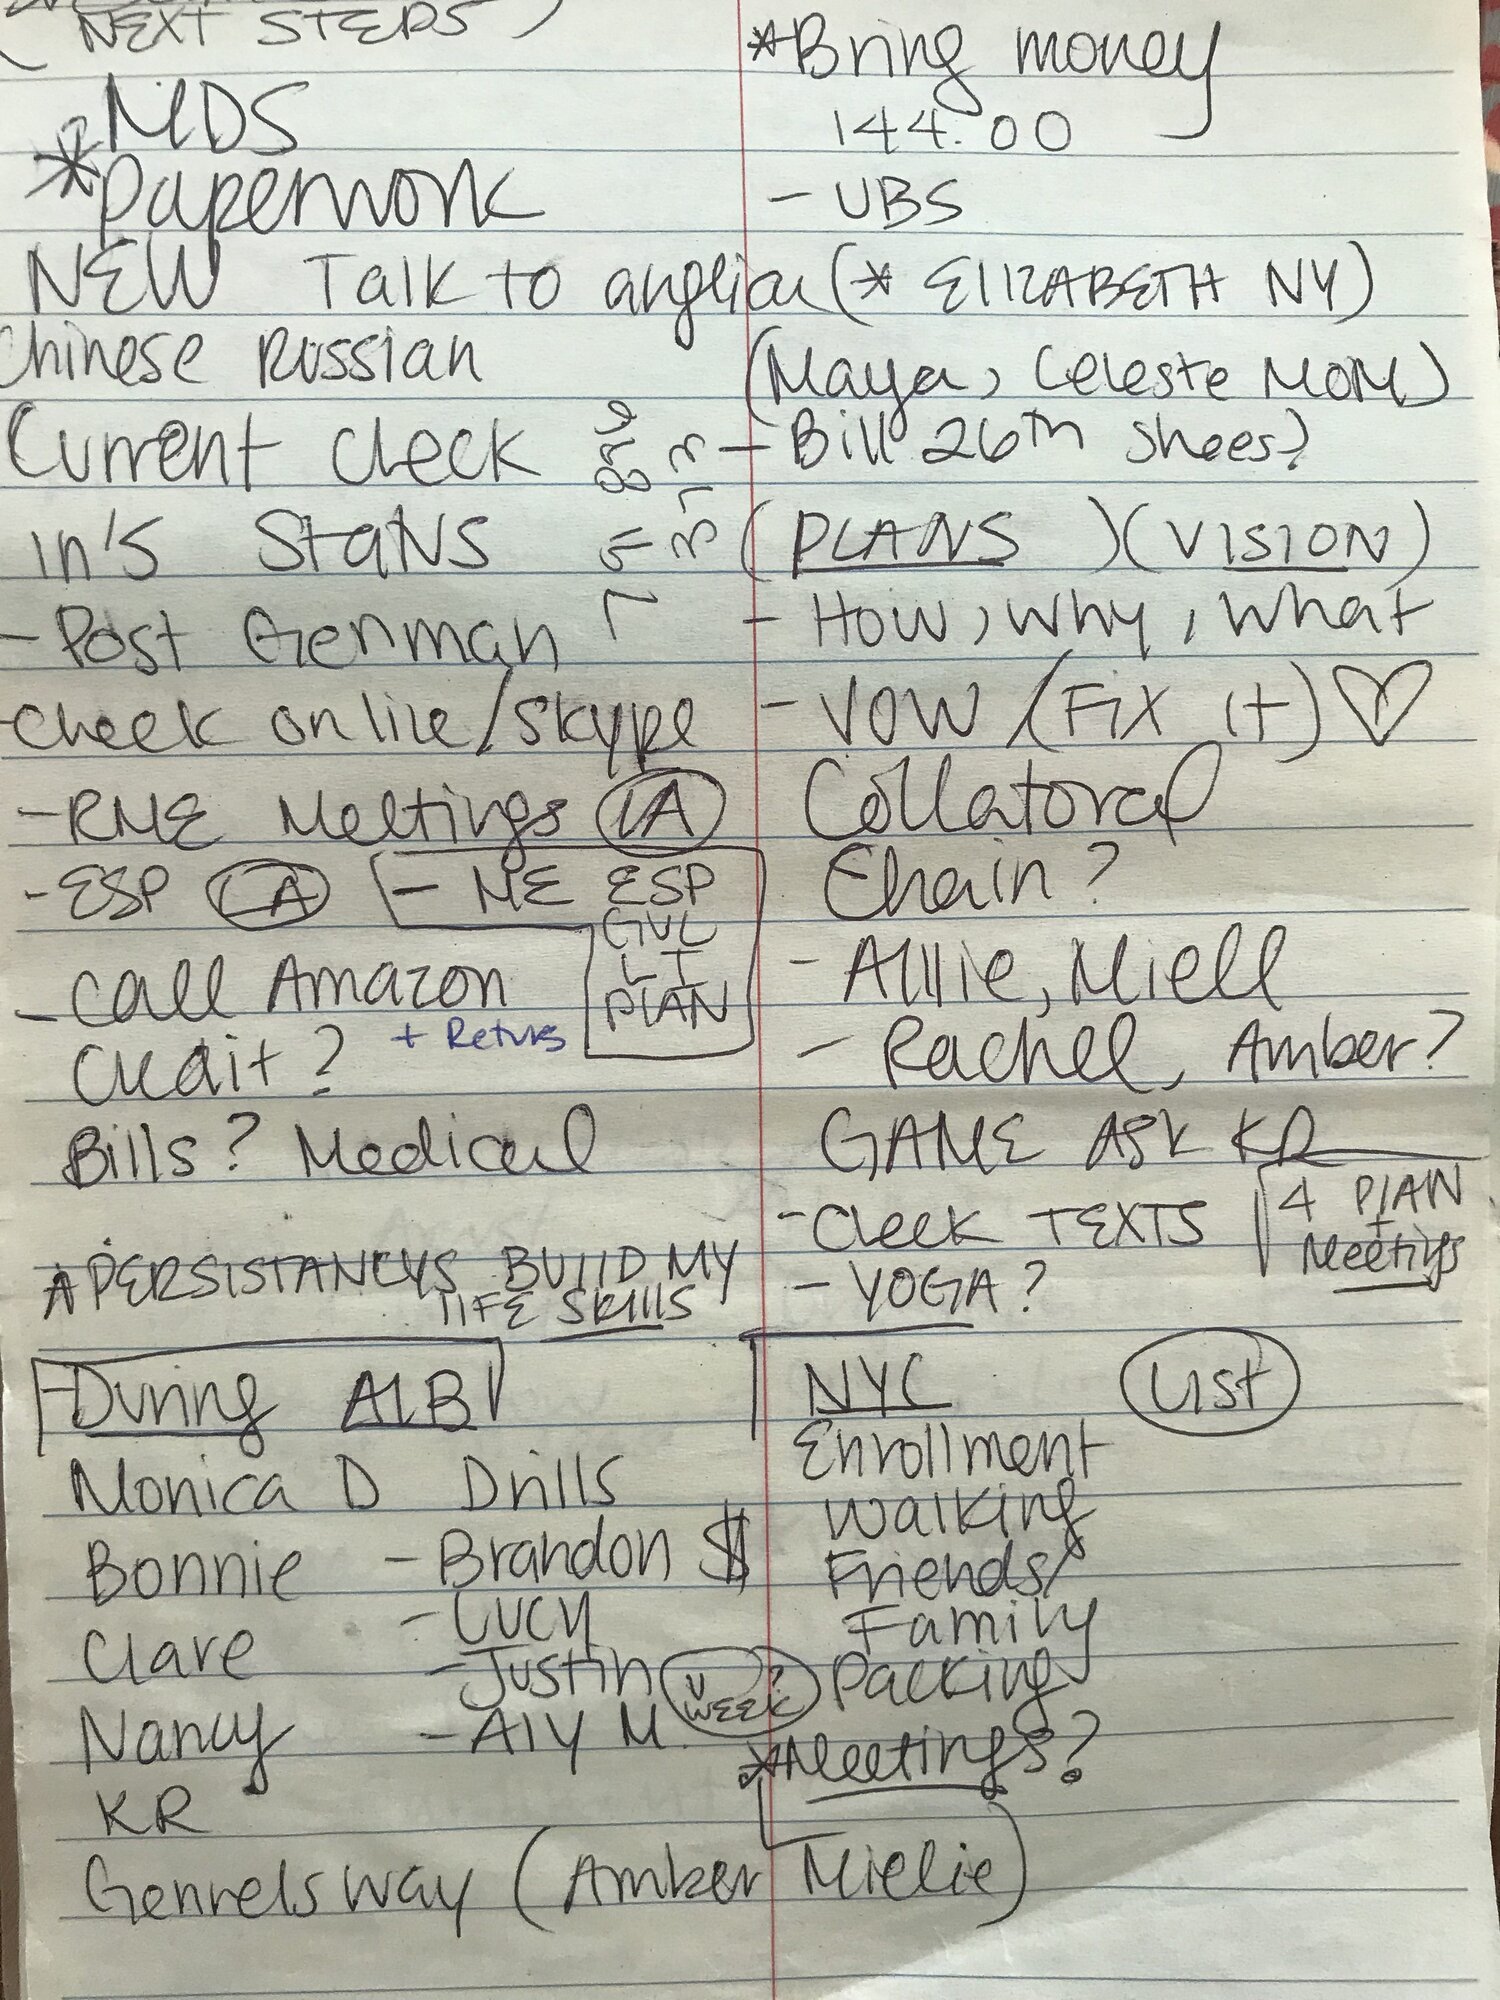 (NEXT STEPS)
*MDS
*Paperwork
NEW Talk to
Chinese Russian
Current check
in's Status
- Post German
- Check online/Skype
- RME Meetings (LA)
- ESP (LA)
- ME ESP
GVL
LT
PLAN
- Call Amazon
+ Returns
Credit?
Bills? Medical
*PERSISTANCYS BUILD MY
LIFE SKILLS
- During ALB
Monica D Drills
Bonnie - Brandon $
Clare - Lucy
- Justin
Nancy - Aly M.
KR
WEEK?
Genrels way (Amber Mielie)
*Bring money
144.00
- UBS
(* ELIZABETH NY)
(Maya, Celeste MOM)
- Bill 26th shees?
(PLANS) (VISION)
- How, Why, What
- VOW / (Fix it) ♡
Collatoral
Chain?
- Allie, Miell
- Rachel, Amber?
GAME ASK KR
- Check TEXTS
4 PLAN
+
Meetings
- YOGA?
NYC (List)
Enrollment
Walking
Friends/
Family
Packing
*Meetings?